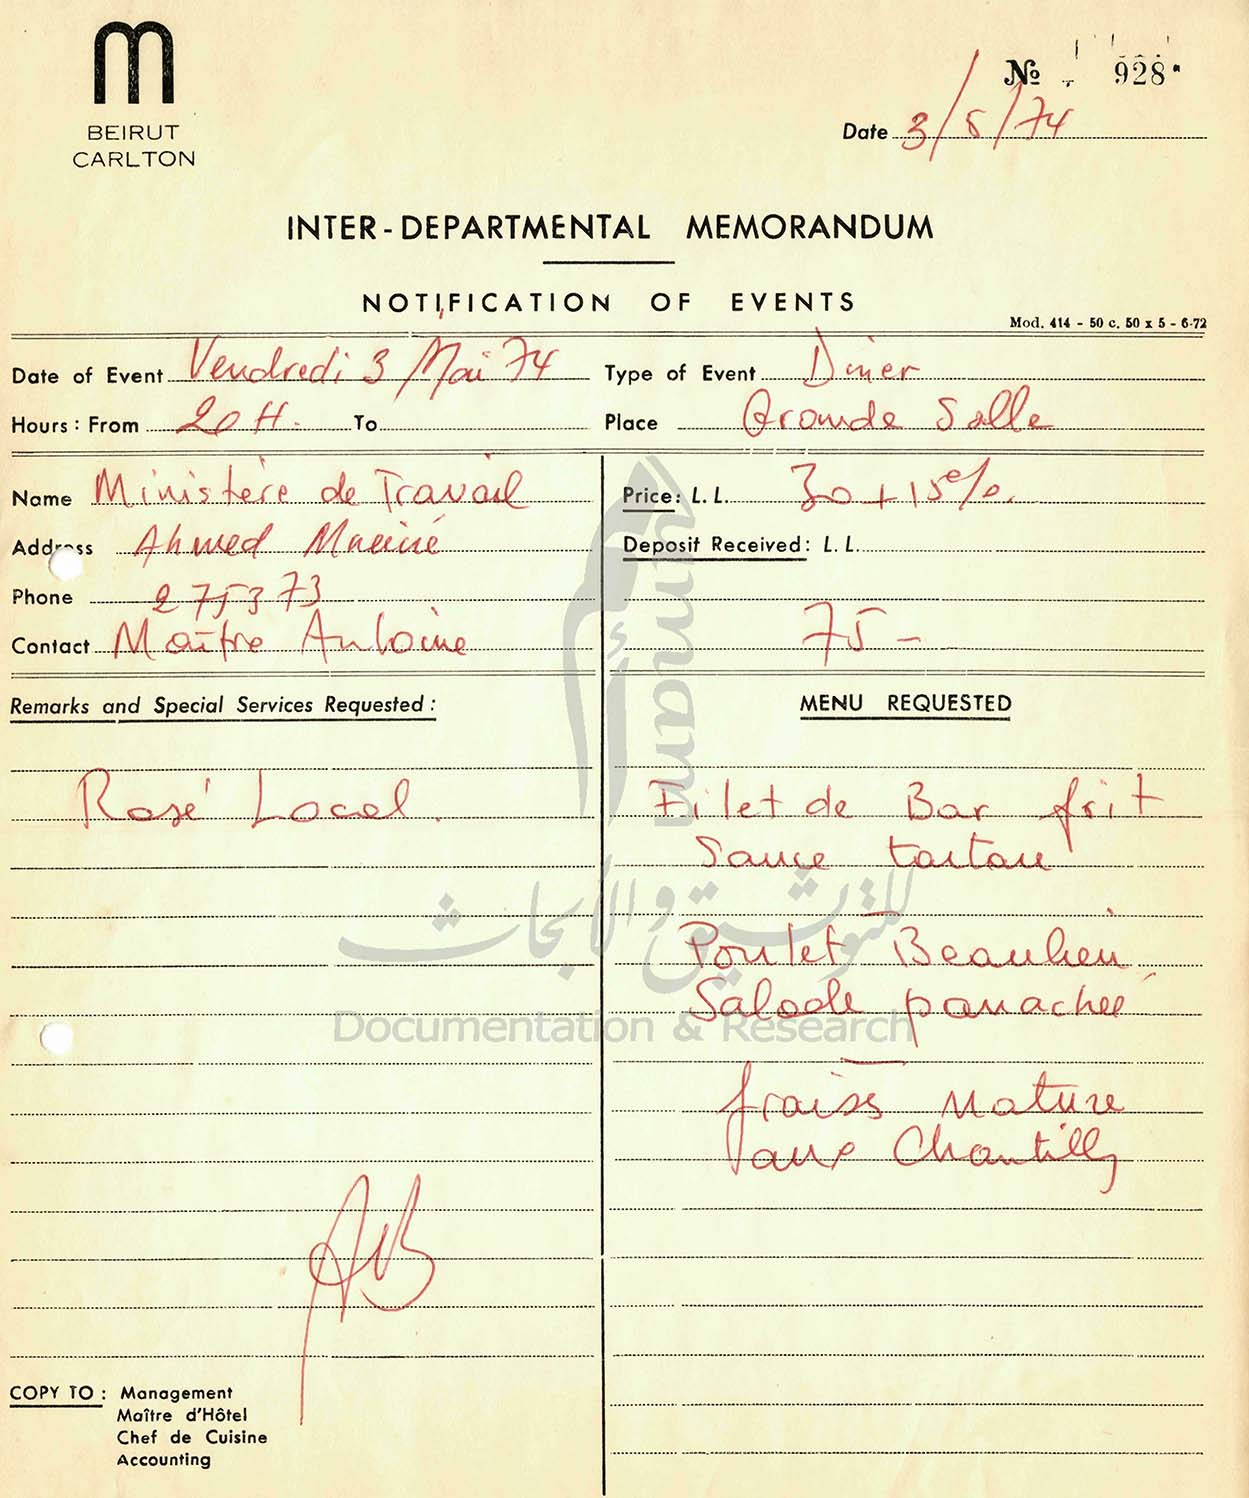 m
BEIRUT
CARLTON
№ 928
Date 3/5/74
INTER-DEPARTMENTAL MEMORANDUM
NOTIFICATION OF EVENTS
Mod. 414 - 50 c. 50 x 5 - 6-72
Date of Event Vendredi 3 Mai 74 Type of Event Diner
Hours: From 20 H. To Place Grande Salle
Name Ministère de Travail
Address Ahmed
Phone 275373
Contact Maître Antoine
Price: L. L. 30 + 15%.
Deposit Received: L. L.
75 -
Remarks and Special Services Requested:
Rosé Local.
MENU REQUESTED
Filet de Bar frit
Sauce tartare
Poulet Beaulieu
Salade panachée
fraises Nature
Chantilly
AB
COPY TO: Management
Maître d'Hôtel
Chef de Cuisine
Accounting
umam
أمم
للتوثيق والأبحاث
Documentation & Research